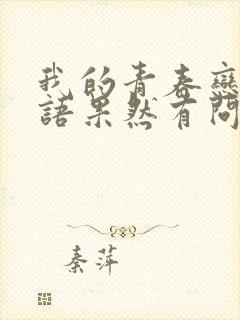 我的青春戀
語果然有問
秦萍